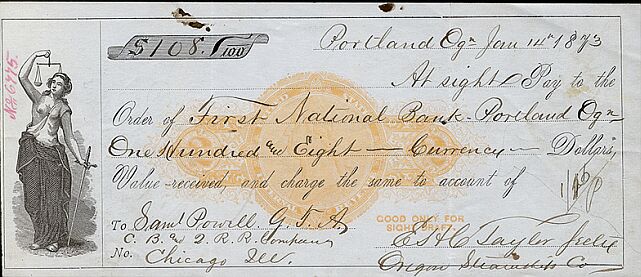 $108. /100
Portland Ogn Jany 14th 1873
At sight Pay to the
Order of First National Bank - Portland Ogn
One Hundred and Eight — Currency — Dollars,
Value received, and charge the same to account of
To Saml Powell. G. T. A.
C. B. and Q. R. R. Company
No. Chicago Ill.
GOOD ONLY FOR
SIGHT DRAFT.
Taylor
Oregon Co
No 6475